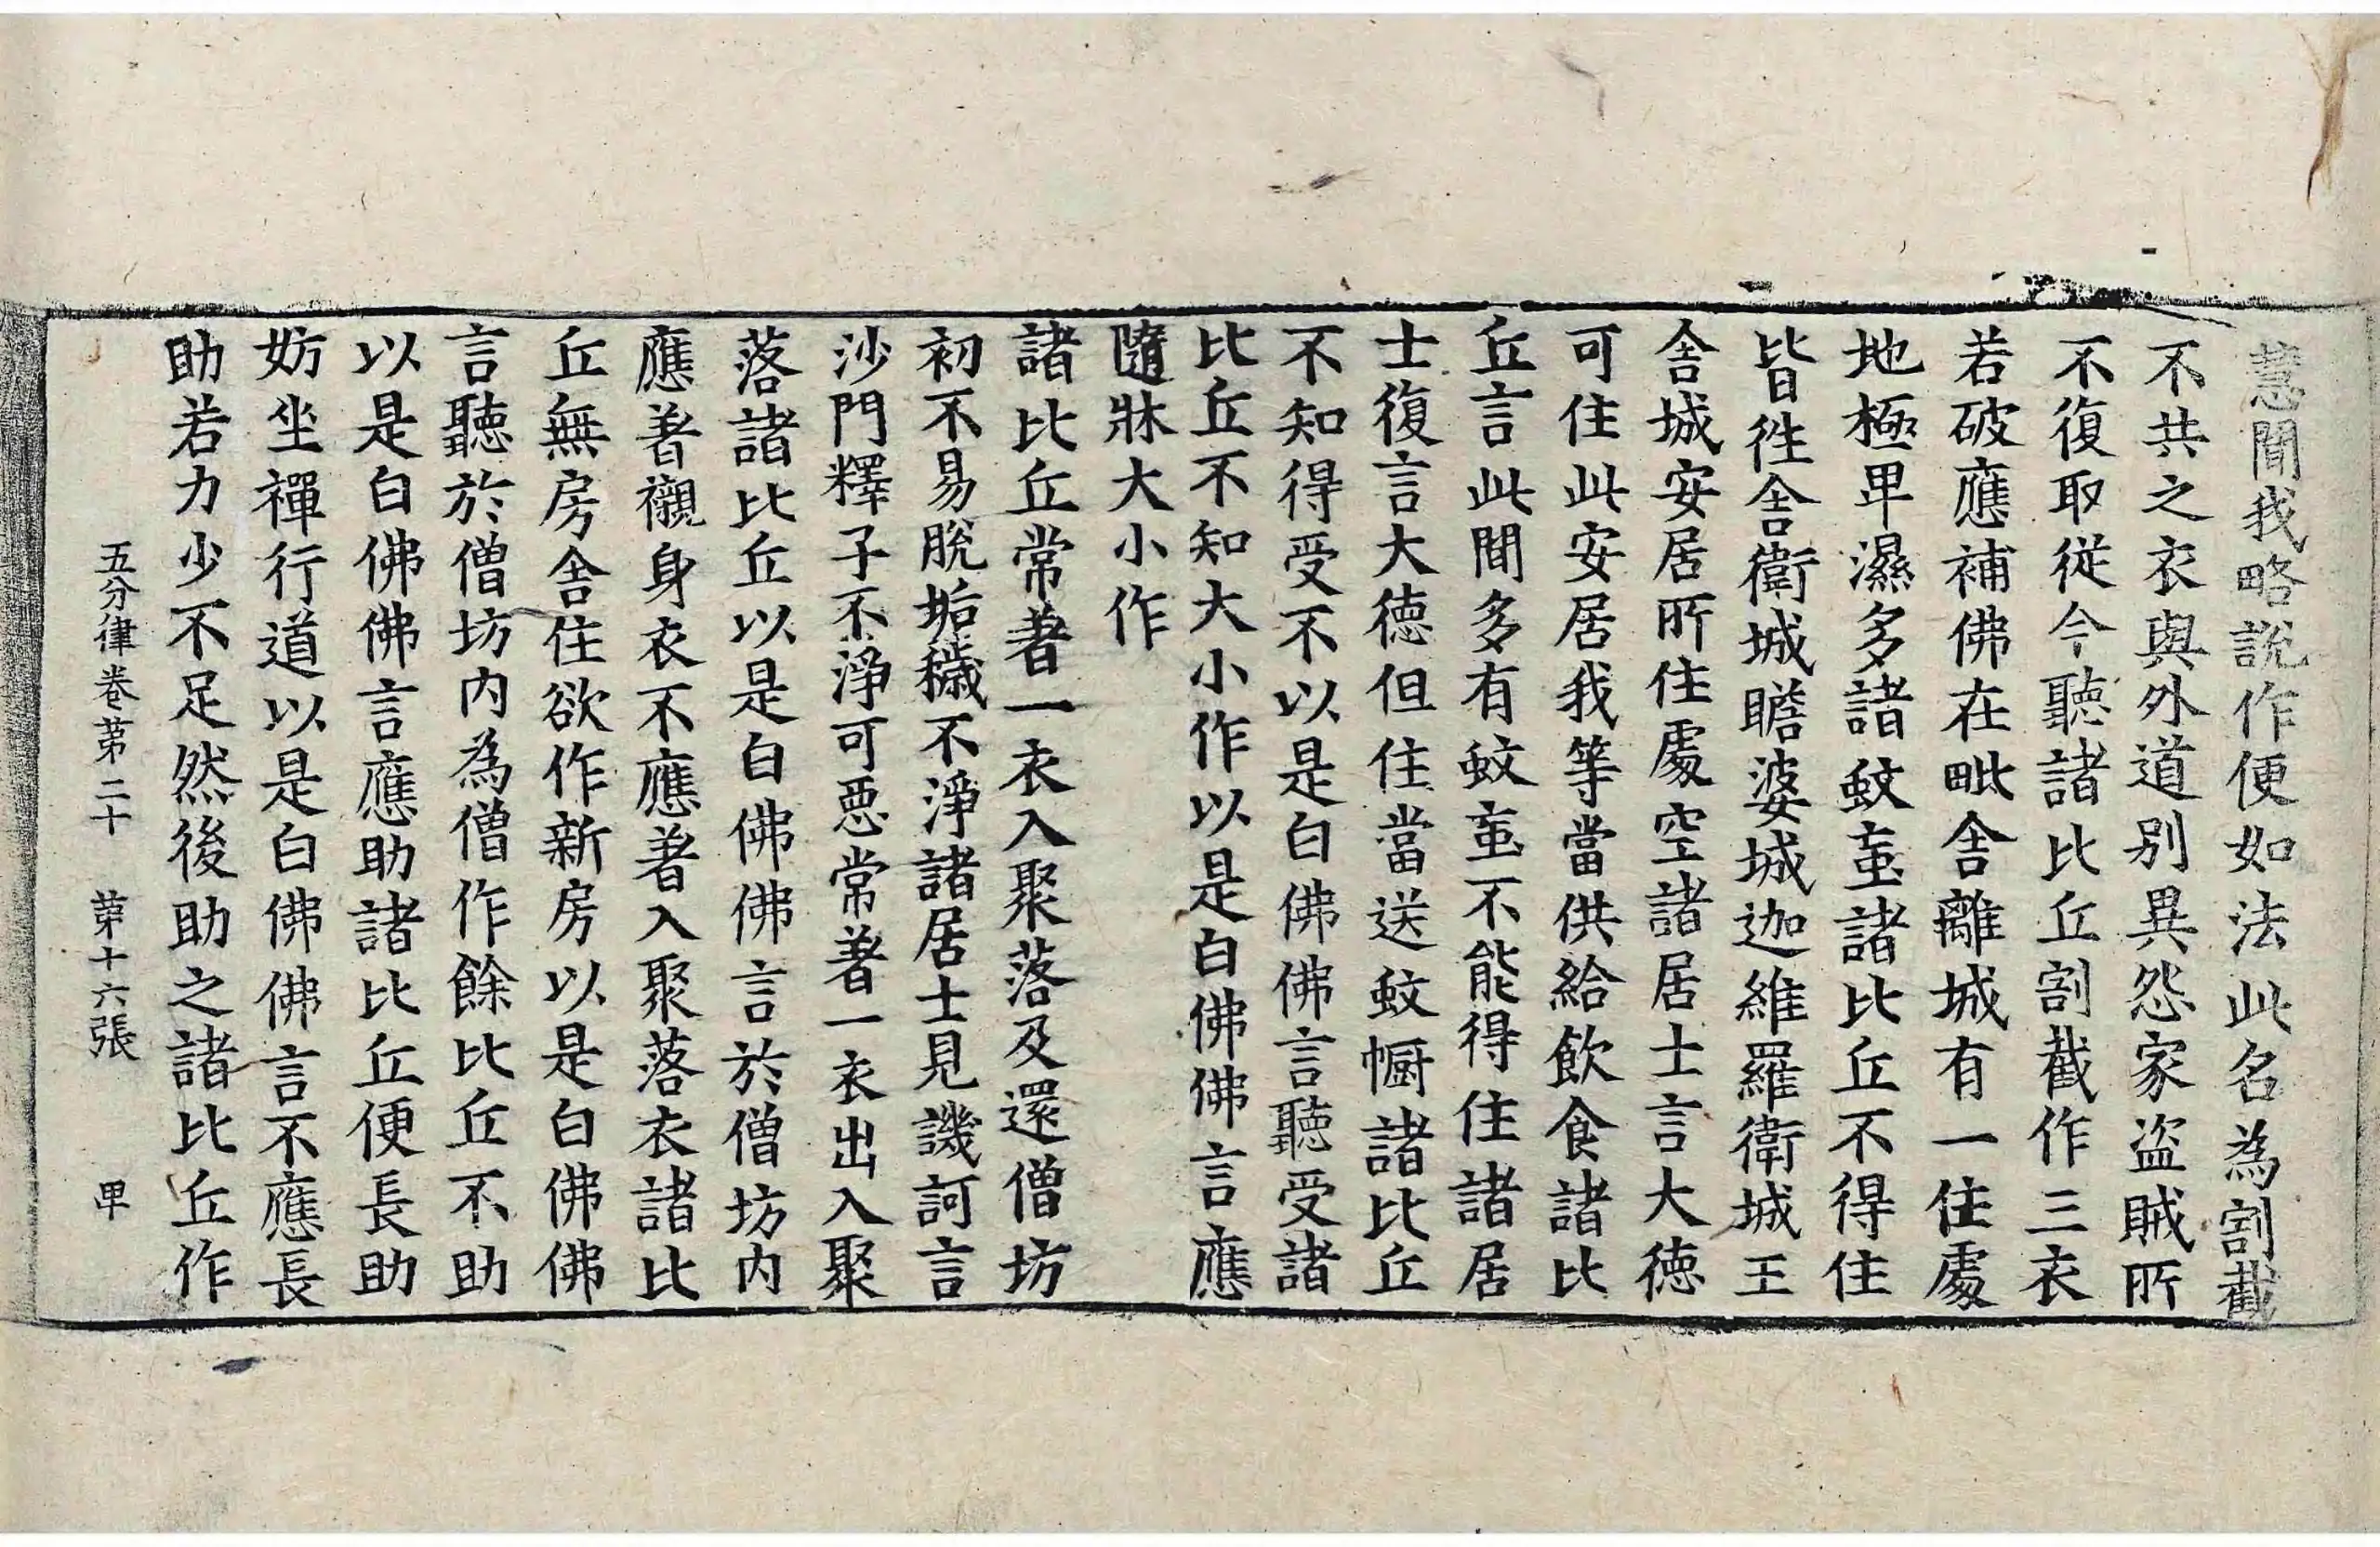 慧聞我略說作便如法此名為割截
不共之衣與外道別異怨家盜賊所
不復取從今聽諸比丘割截作三衣
若破應補佛在毗舍離城有一住處
地極卑濕多諸蚊䖟諸比丘不得住
皆徃舍衛城瞻婆城迦維羅衛城王
舍城安居所住處空諸居士言大徳
可住此安居我等當供給飲食諸比
丘言此間多有蚊䖟不能得住諸居
士復言大徳但住當送蚊㡡諸比丘
不知得受不以是白佛佛言聽受諸
比丘不知大小作以是白佛佛言應
隨牀大小作
諸比丘常著一衣入聚落及還僧坊
初不易脫垢穢不淨諸居士見譏訶言
沙門釋子不淨可惡常著一衣出入聚
落諸比丘以是白佛佛言於僧坊内
應著襯身衣不應著入聚落衣諸比
丘無房舍住欲作新房以是白佛佛
言聽於僧坊内為僧作餘比丘不助
以是白佛佛言應助諸比丘便長助
妨坐禪行道以是白佛佛言不應長
助若力少不足然後助之諸比丘作
五分律卷第二十　第十六張　甲